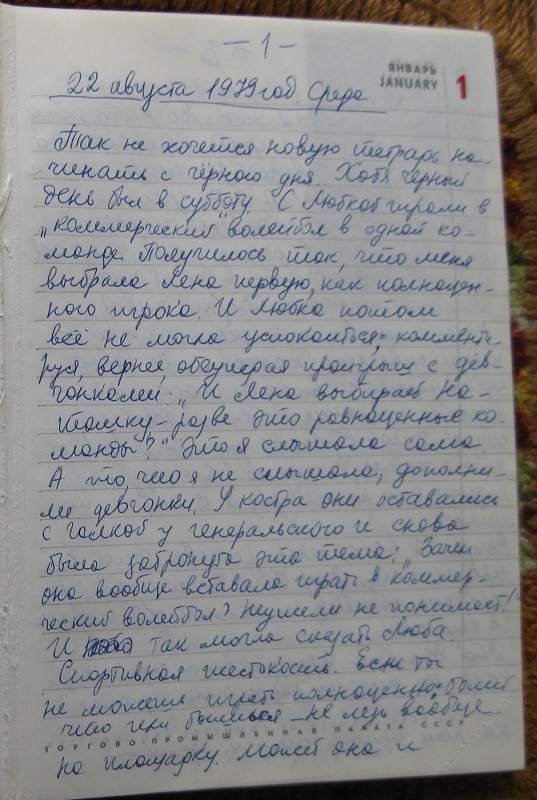 — 1 —
ЯНВАРЬ
JANUARY 1
22 августа 1979 год. Среда
Так не хочется новую тетрадь на-
чинать с чёрного дня. Хотя чёрный
день был в субботу. С Любкой играли в
„коммерческий" волейбол в одной ко-
манде. Получилось так, что меня
выбрала Лена первую, как полноцен-
ного игрока. И Любка потом
всё не могла успокоиться, комменти-
руя, вернее, обсуждая проигрыш с дев-
чонками: „И Лена выбирает На-
ташку - разве это равноценные ко-
манды?" Это я слышала сама.
А то, что я не слышала, дополни-
ли девчонки. У костра они оставались
с Галкой у генеральского и снова
была затронута эта тема: „Зачем
она вообще вставала играть в „коммер-
ческий волейбол? Неужели не понимает!"
И так могла сказать Люба.
Спортивная жестокость. Если ты
не можешь играть полноценно:
что или - не лезь вообще
ТОРГОВО-ПРОМЫШЛЕННАЯ ПАЛАТА СССР
на площадку. Может она и